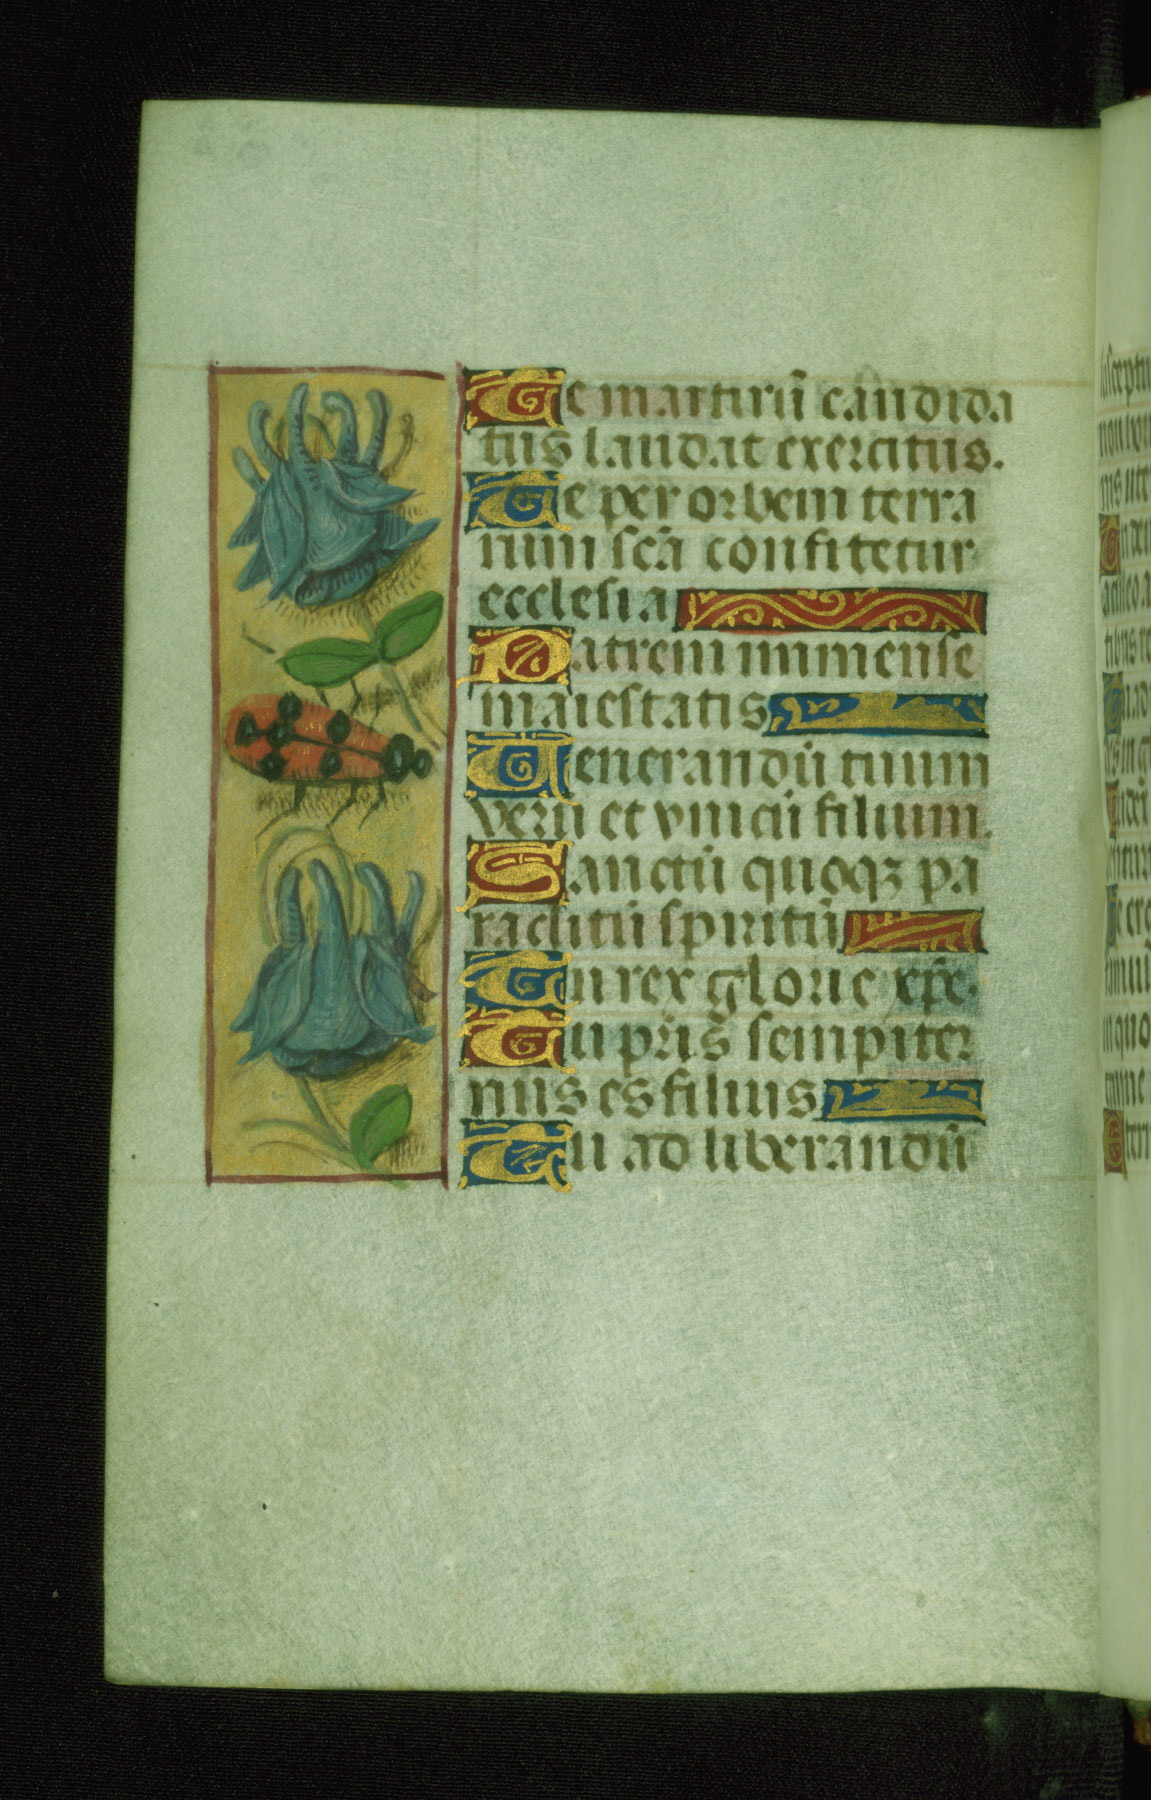 Te martirū candida
tus laudat exercitus.
Te per orbem terra
rum scā confitetur
ecclesia
Patrem immense
maiestatis
Venerandū tuum
verū et vnicū filium.
Sanctū quoqꝫ pa
raclitū spiritū
Tu rex glorie xp̄e.
Tu pr̄is sempiter
nus es filius
Tu ad liberandū